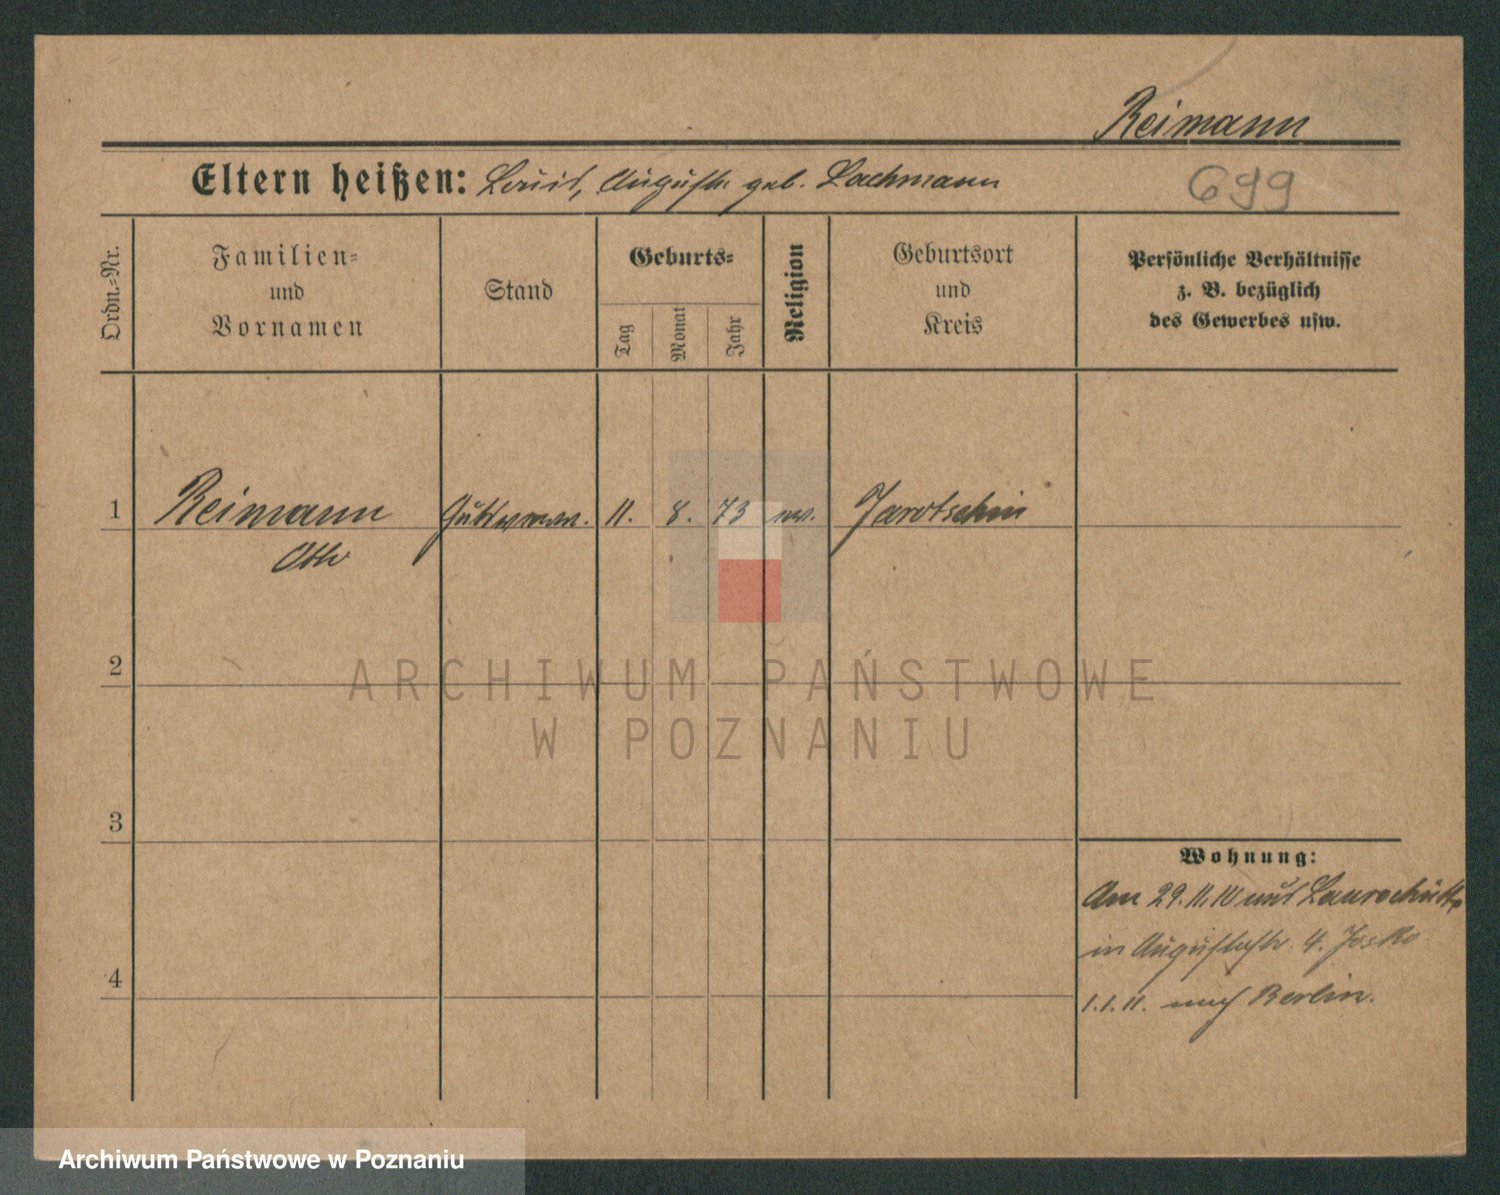 Reimann
Eltern heißen: Louis, Auguste geb. Lachmann
699
Ordn.-Nr.
Familien-
und
Vornamen
Stand
Geburts-
Tag
Monat
Jahr
Religion
Geburtsort
und
Kreis
Persönliche Verhältnisse
z. B. bezüglich
des Gewerbes usw.
1 Reimann 11. 8. 73 Jarotschin
Otto
2
ARCHIWUM PAŃSTWOWE
W POZNANIU
3
Wohnung:
Am 29.11.10 aus
in Augustastr. 4.
4
1.1.11. nach Berlin.
Archiwum Państwowe w Poznaniu